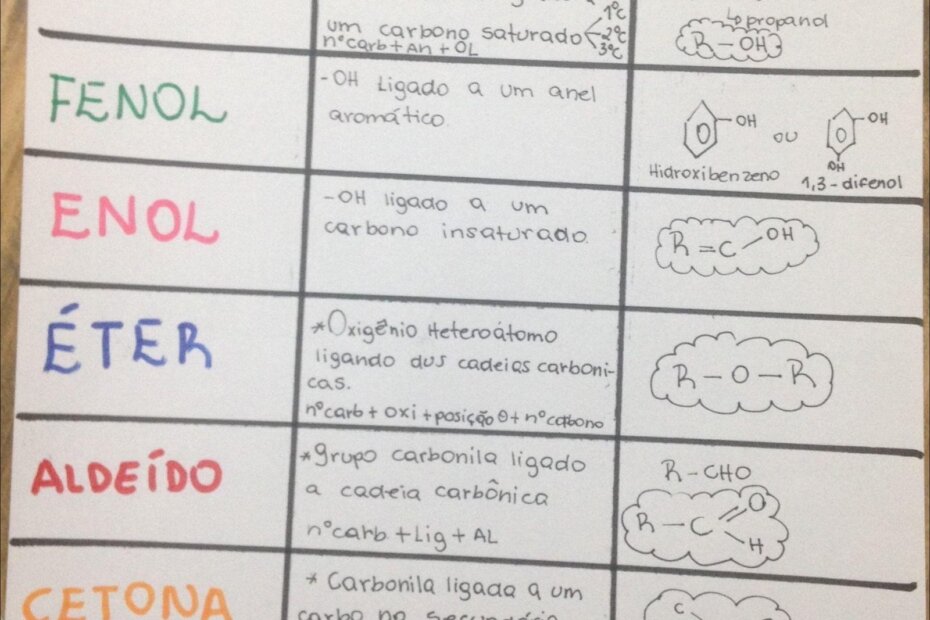 1ºC
um carbono saturado 2ºC
nºcarb + An + OL 3ºC
↳ propanol
R - OH
FENOL
-OH Ligado a um anel
aromático.
OH ou OH
OH
Hidroxibenzeno 1,3-difenol
ENOL
-OH ligado a um
carbono insaturado.
R = C OH
ÉTER
*Oxigênio Heteroátomo
ligando dus cadeias carboni-
cas.
nºcarb + oxi + posição θ + nºcarbono
R - O - R
ALDEÍDO
*grupo carbonila ligado
a cadeia carbônica
nºcarb + Lig + AL
R - CHO
O
R - C
H
CETONA
* Carbonila ligada a um
carbo no secundário
C